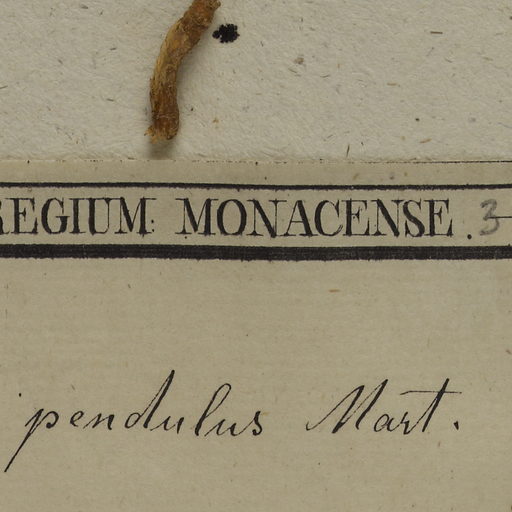 REGIUM MONACENSE. 3
pendulus Mart.